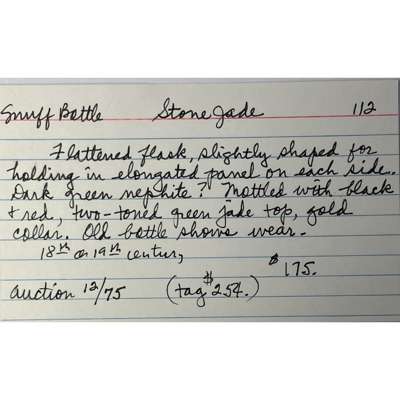 Snuff Bottle Stone Jade 112
Flattened flask, slightly shaped for
holding in elongated panel on each side.
Dark green nephite? Mottled with black
& red, two-toned green jade top, gold
collar. Old bottle shows wear.
18th or 19th century
$175.
auction 12/75 (tag $254.)